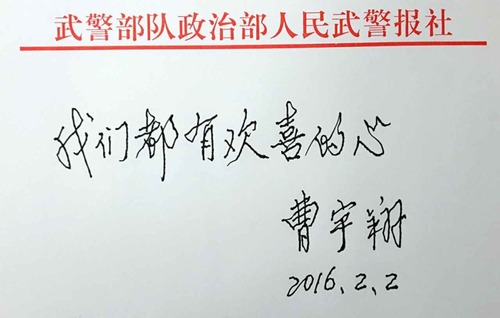 武警部队政治部人民武警报社
我们都有欢喜的心
曹宇翔
2016.2.2